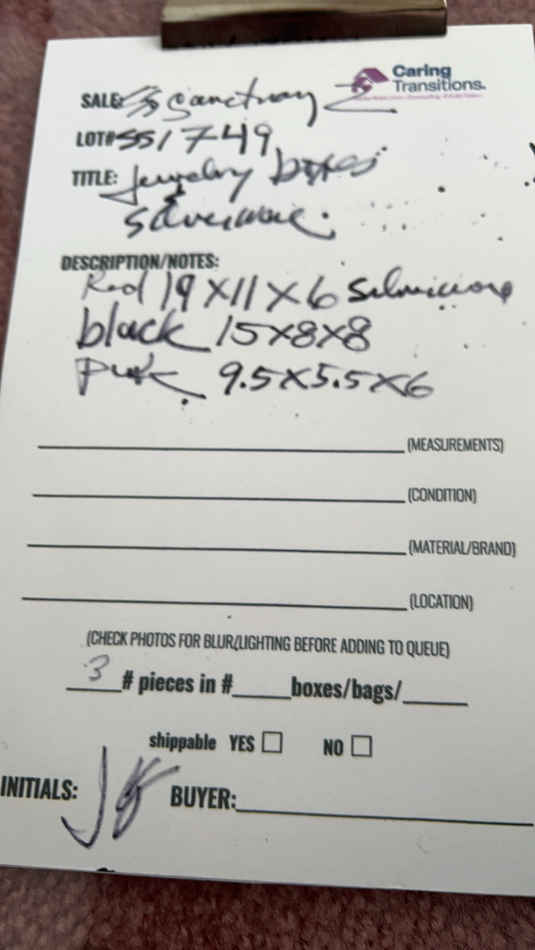 Caring
Transitions.
SALE: SS Sanctuary 2
LOT# SS1749
TITLE: Jewelry boxes
silverware.
DESCRIPTION/NOTES:
Red 19x11x6 Silverware
black 15x8x8
pink 9.5x5.5x6
(MEASUREMENTS)
(CONDITION)
(MATERIAL/BRAND)
(LOCATION)
(CHECK PHOTOS FOR BLUR/LIGHTING BEFORE ADDING TO QUEUE)
3 # pieces in #_____boxes/bags/_____
shippable YES ☐ NO ☐
INITIALS: BUYER: